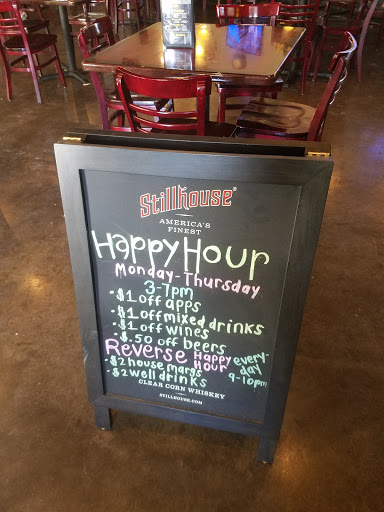 Stillhouse®
AMERICA'S
FINEST
Happy Hour
Monday-Thursday
3-7pm
• $1 off apps
• $1 off mixed drinks
• $1 off wines
• $.50 off beers
Reverse Happy Hour every-day
9-10pm
• $2 house margs
• $2 well drinks
CLEAR CORN WHISKEY
STILLHOUSE.COM